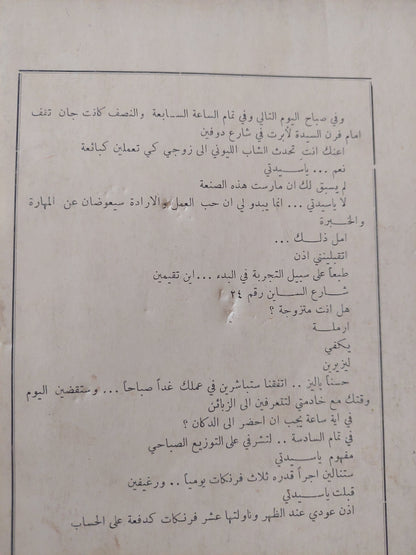 وفي صباح اليوم التالي وفي تمام الساعة السابعة والنصف كانت جان تقف
امام فرن السيدة لابرت في شارع دوفين
اعنك انت تحدث الشاب الليوني الى زوجي كي تعملين كبائعة
نعم ... ياسيدتي
لم يسبق لك ان مارست هذه الصنعة
لا ياسيدتي ... انما يبدو لي ان حب العمل والارادة سيعوضان عن المهارة
والخبرة
امل ذلك ...
اتقبلينني اذن
طبعاً على سبيل التجربة في البدء ... اين تقيمين
شارع الساين رقم ٢٤
هل انت متزوجة ؟
ارملة
يكفي
ليزيرين
حسناً ياليز .. اتفقنا ستباشرين في عملك غداً صباحاً ... وستقضين اليوم
وقتك مع خادمتي لتتعرفين الى الزبائن
في اية ساعة يجب ان احضر الى الدكان ؟
في تمام السادسة .. لتشرفي على التوزيع الصباحي
مفهوم ياسيدتي
ستنالين اجراً قدره ثلاث فرنكات يومياً .. ورغيفين
قبلت ياسيدتي
اذن عودي عند الظهر وناولتها عشر فرنكات كدفعة على الحساب